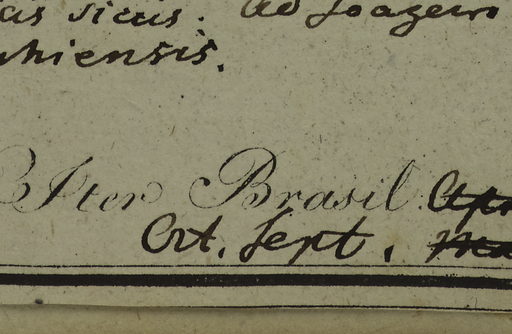 siccis. Ad Joazeiro
hiensis.
Iter Brasil.
Oct. Sept.